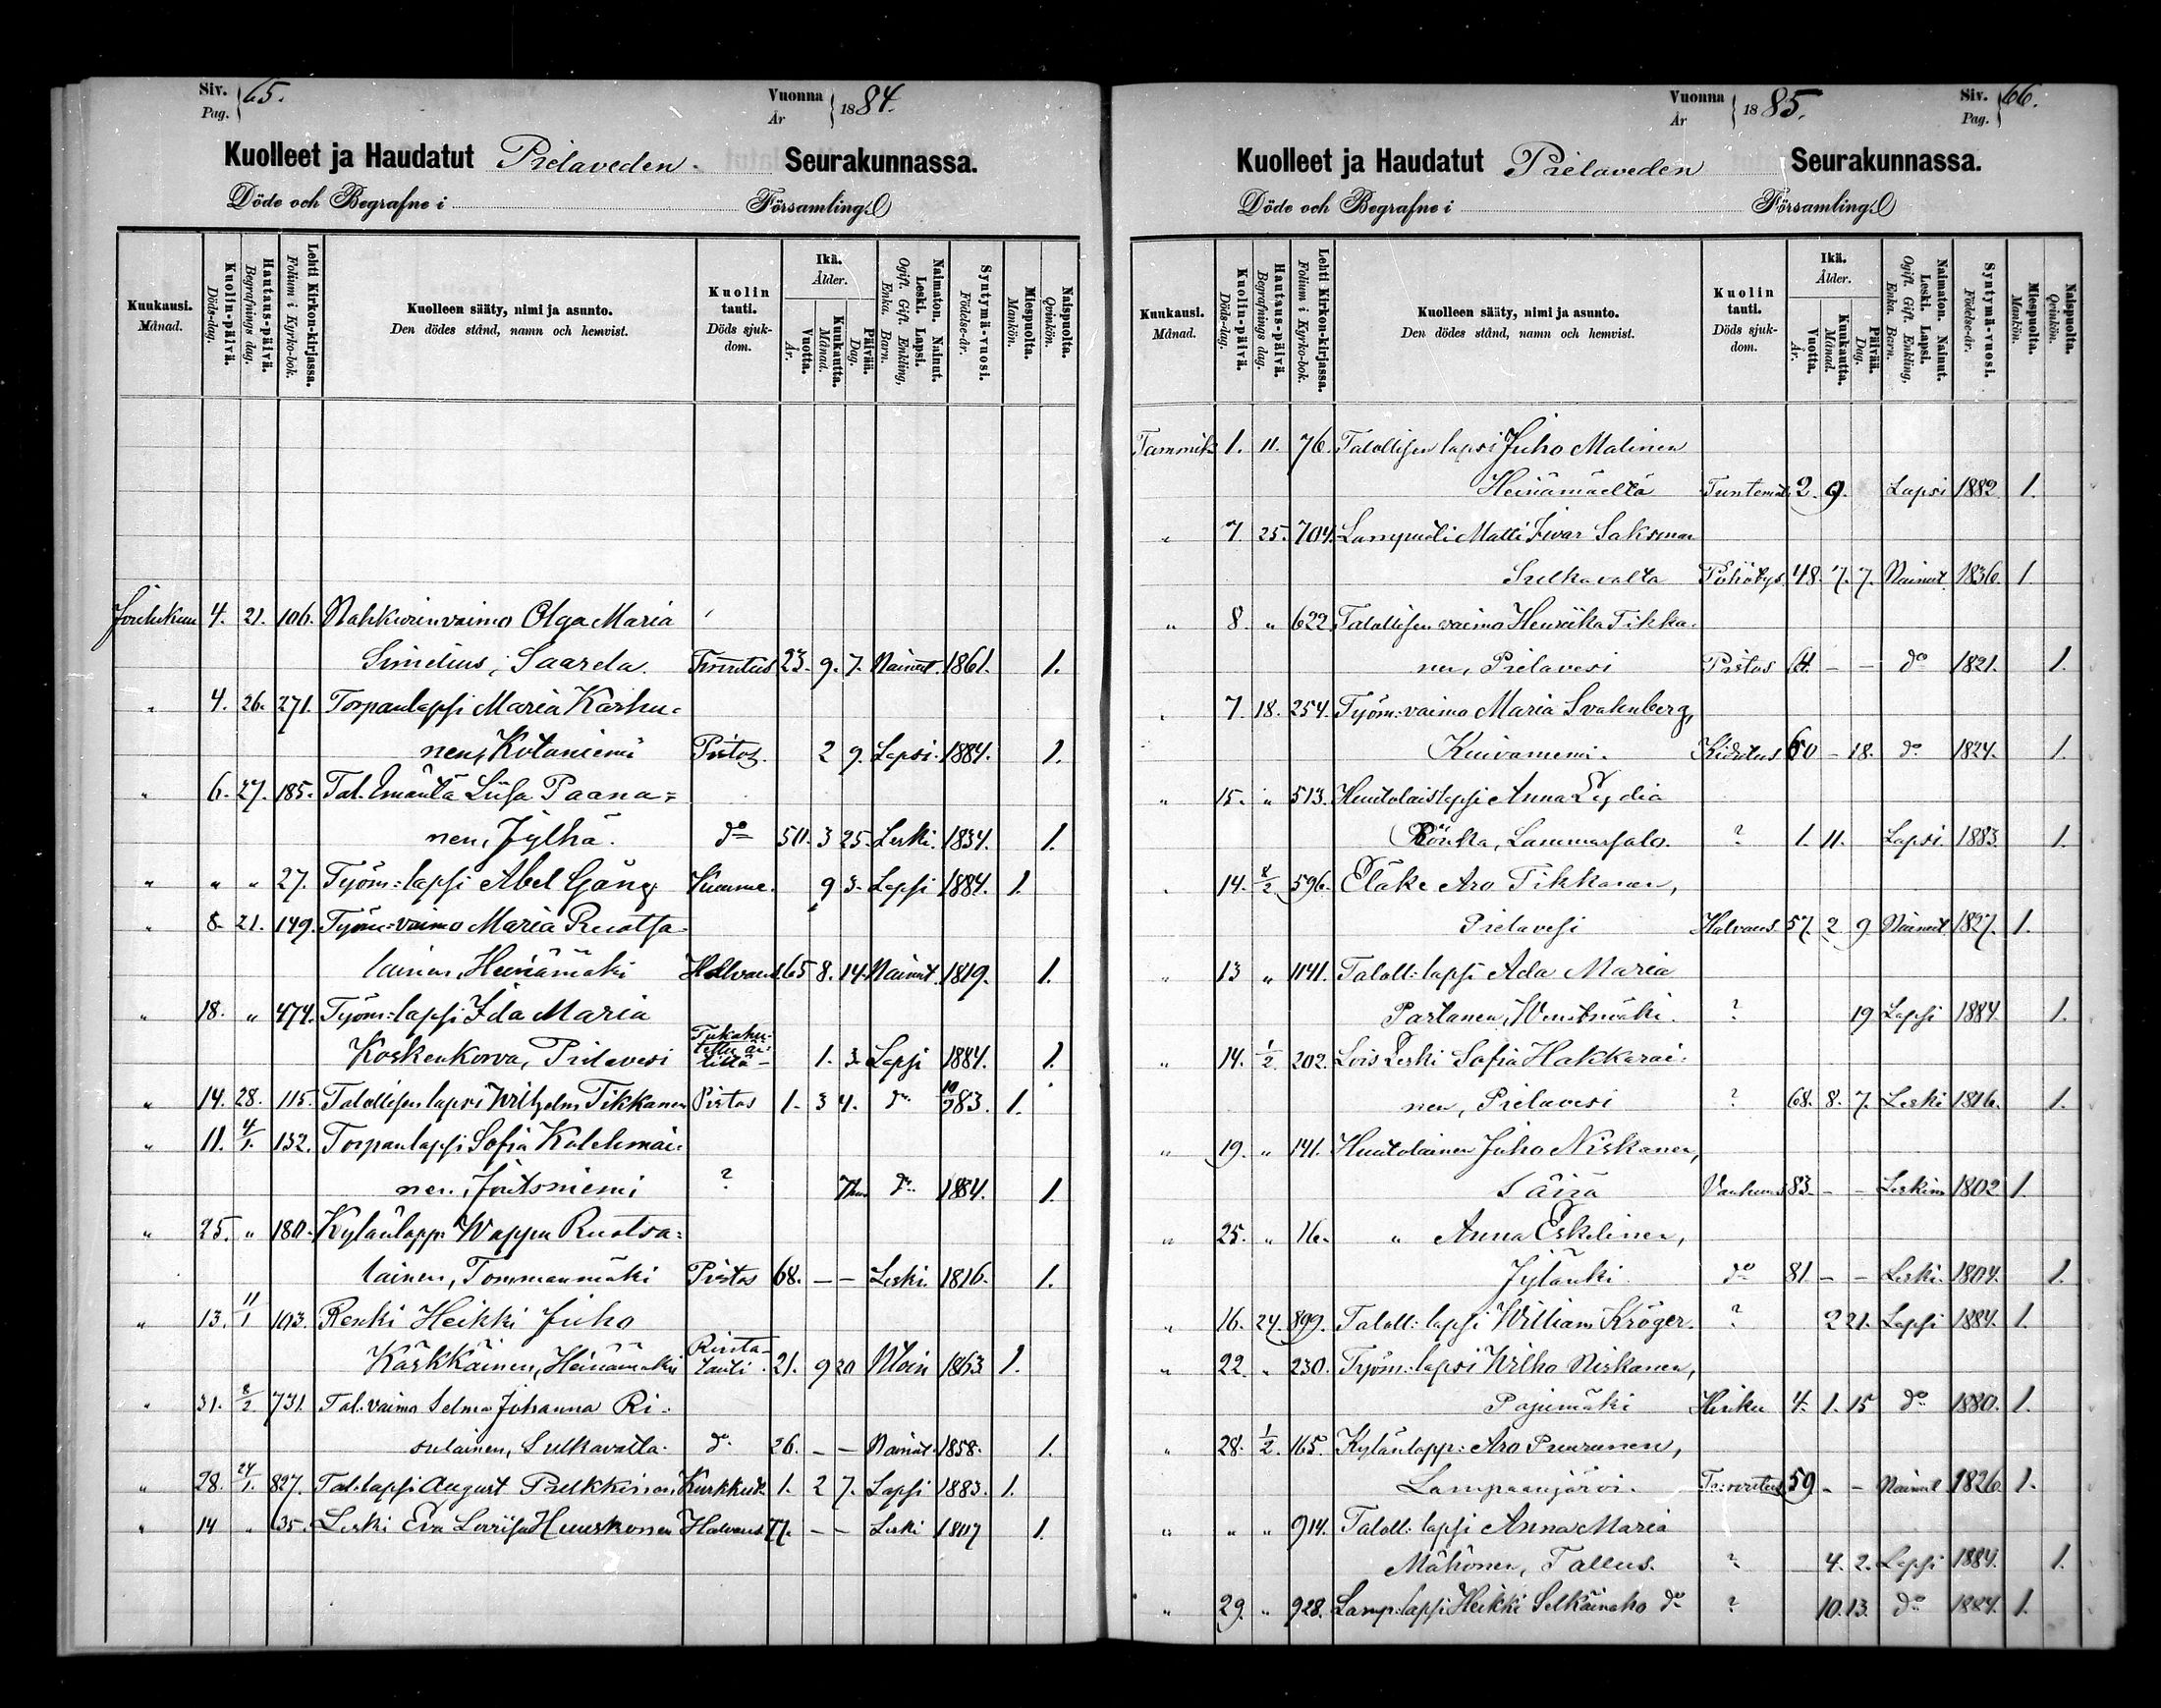 Siv. Pag. 65. Vuonna År 1884.
Kuolleet ja Haudatut Pielaveden Seurakunnassa.
Döde och Begrafne i Församling.
Kuukausi. Månad.
Kuolin-päivä. Döds-dag.
Hautaus-päivä. Begrafnings dag.
Lehti Kirkon-kirjassa. Folium i Kyrko-bok.
Kuolleen sääty, nimi ja asunto.
Den dödes stånd, namn och hemvist.
Kuolin tauti. Döds sjuk-dom.
Ikä. Ålder.
Vuotta. År.
Kuukautta. Månad.
Päivää. Dag.
Naimaton. Nainut. Leski. Lapsi. Ogift. Gift. Enkling, Enka. Barn.
Syntymä-vuosi. Födelse-år.
Miespuolta. Mankön.
Naispuolta. Qvinkön.
Joulukuu 4. 21. 106. Nahkurinvaimo Olga Maria
Simelius, Saarela. 23. 9. 7. Nainut. 1861. 1.
" 4. 26. 271. Torpanlapsi Maria Karhu-
nen, Kotaniemi Pistos. 2 9. Lapsi. 1884. 1.
" 6. 27. 185. Tal. Emäntä Liisa Paana=
nen, Jylhä. do 50. 3 25. Leski. 1834. 1.
" " " 27. Työm=lapsi Abel Gäng Kuume. 9 3. Lapsi 1884. 1.
" 8. 21. 149. Työm=vaimo Maria Ruotsa-
lainen, Heinämäki Halvaus 65 8. 14. Nainut. 1819. 1.
" 18. " 474. Työm=lapsi Ida Maria
Koskenkorva, Pielavesi Tukahu- tettu äi- tiltä - 1. 3. Lapsi 1884. 1.
" 14. 28. 115. Talollisen lapsi Wilhelm Tikkanen Pistos 1. 3 4. do 83. 1.
" 11. 4/1. 132. Torpanlapsi Sofia Kolehmai-
nen, Joutsniemi ? do 1884. 1.
" 25. " 180. Kylänlapp. Wappu Ruotsa=
lainen, Tommanmäki Pistos 68. – – Leski. 1816. 1.
" 13. 11/1 103. Renki Heikki Juho
Kärkkäinen, Heinämäki Rinta- tauti. 21. 9 20 Nloin 1863 1.
" 31. 8/2 731. Tal. vaimo Selma Johanna Ri-
sulainen, Sulkavalta. do 26. – – Nainut. 1858. 1.
" 28. 24/1. 827. Tal.lapsi August Pulkkinen Kurkkut. 1. 2 7. Lapsi 1883. 1.
" 14 " 35. Leski Eva Lovisa Huuskonen Halvaus – – Leski 1.
Vuonna År 1885. Siv. Pag. 66.
Kuolleet ja Haudatut Pielaveden Seurakunnassa.
Döde och Begrafne i Församling.
Kuukausi. Månad.
Kuolin-päivä. Döds-dag.
Hautaus-päivä. Begrafnings dag.
Lehti Kirkon-kirjassa. Folium i Kyrko-bok.
Kuolleen sääty, nimi ja asunto.
Den dödes stånd, namn och hemvist.
Kuolin tauti. Döds sjuk-dom.
Ikä. Ålder.
Vuotta. År.
Kuukautta. Månad.
Päivää. Dag.
Naimaton. Nainut. Leski. Lapsi. Ogift. Gift. Enkling, Enka. Barn.
Syntymä-vuosi. Födelse-år.
Miespuolta. Mankön.
Naispuolta. Qvinkön.
Tammik. 1. 11. 76. Talollisen lapsi Juho Malinen
Heinämäeltä Tuntemat. 2. 9. Lapsi 1882 1.
" 7. 25. 704. Lampuoti Matti Iivar Saksman
Sulkavalta Pöhötys. 48. 7. 7. Nainut. 1836. 1.
" 8. " 622. Talollisen vaimo Henrikka Tikka-
nen, Pielavesi Pistos – – do 1821. 1.
" 7. 18. 254. Työm=vaimo Maria Svahnberg,
Kuivaniemi. 60 – 18. do. 1824. 1.
" 15. " 513. Huutolaislapsi Anna Lydia
Rönkkä, Lammassalo. ? 1. 11. Lapsi. 1883. 1.
" 14. 8/2 596. Eläke Aro Tikkanen,
Pielavesi Halvaus 57. 2. 9 Nainut. 1827. 1.
" 13 " 1141. Taloll=lapsi Ada Maria
Partanen, Wenetmäki. ? 19 Lapsi 1884. 1.
" 14. 1/2 202. Lois Leski Sofia Hakkarai-
nen, Pielavesi ? 68. 8. 7. Leski 1816. 1.
" 19. " 141. Huutolainen Juho Niskanen,
Säviä Vanhuus 83. – – Leskim 1802 1.
" 25. " 16. " Anna Eskelinen,
Jylänki. do 81. – – Leski. 1804. 1.
" 16. 24. 899. Taloll=lapsi William Kröger. ? 2 21. Lapsi 1884. 1.
" 22. " 230. Työm=lapsi Wilho Niskanen,
Pajumäki Hinku 4. 1. 15 do 1880. 1.
" 28. 1/2. 165. Kylänlapp: Aro Puurunen,
Lampaanjärvi. 59. – – Nainut. 1826. 1.
" " " 914. Taloll=lapsi Anna Maria
Mähönen, Tallus. ? 4. 2. Lapsi 1884. 1.
" 29. " 928. Lamp=lapsi Heikki Selkäinaho do ? 10. 13. do 1884. 1.